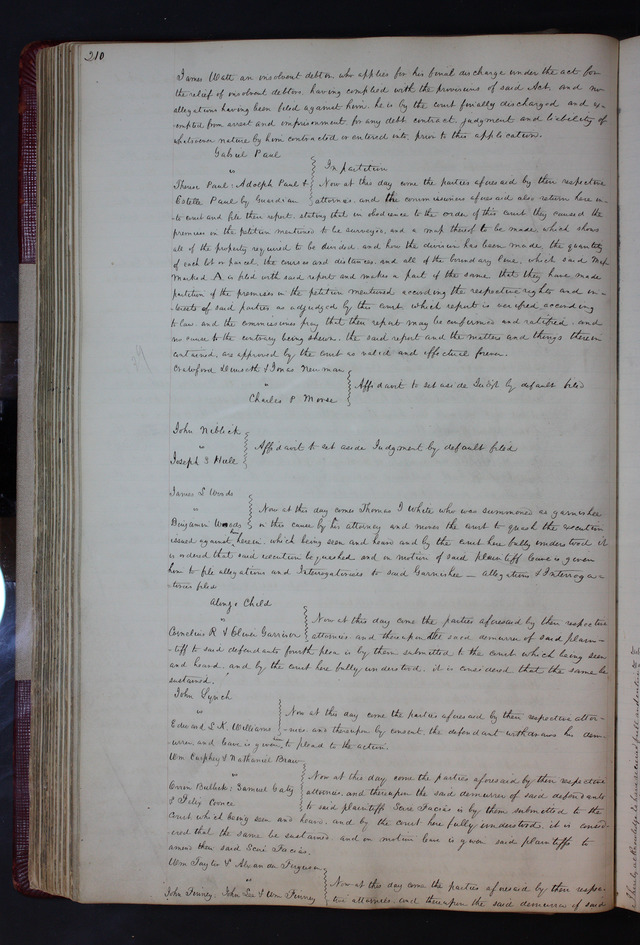 210
James Watt an insolvent debtor, who applies for his final discharge under the act for
the relief of insolvent debtors, having complied with the provisions of said Act, and no
allegations having been filed against him, he is by the court finally discharged and ex-
empted from arrest and imprisonment for any debt contract, judgment and liability of
whatsoever nature by him contracted or entered into, prior to this application.
Gabriel Paul
vs In partition
Therese Paul, Adolph Paul & Now at this day come the parties aforesaid by their respective
Estelle Paul by Guardian attornies, and the commissioners aforesaid also return here in-
to court and file their report, stating that in obedience to the order of this court they caused the
premises in the petition mentioned to be surveyed, and a map thereof to be made, which shows
all of the property required to be divided and how the division has been made, the quantity
of each lot or parcel, the courses and distances, and all of the boundary lines, which said map
marked A is filed with said report and makes a part of the same that they have made
partition of the premises in the petition mentioned according the respective rights and in-
terests of said parties as adjudged by this court which report is verified according
to law, and the commissioners pray that their report may be confirmed and ratified, and
no cause to the contrary being shewn, the said report and the matters and things therein
contained, are approved by the court as valid and effectual forever.
Crawford & Jonas Newman
vs Affidavit to set aside by default filed
Charles P Morse
John Niblick
vs Affidavit to set aside Judgment by default filed
Joseph S Hull
James S Woods
vs Now at this day comes Thomas J White who was summoned as garnishee
Benjamin Woods in this cause by his attorney and moves the court to quash the execution
issued against him herein, which being seen and heard and by the court here fully understood it
is ordered that said execution be quashed and on motion of said plaintiff leave is given
him to file allegations and Interrogatories to said Garnishee — allegations & Interroga-
tories filed
Alonzo Child
vs Now at this day come the parties aforesaid by their respective
Cornelius R & Oliver Garrison attornies and thereupon the said demurrer of said plain-
tiff to said defendants fourth plea is by them submitted to the court which being seen
and heard, and by the court here fully understood, it is considered that the same be
sustained.
John Lynch
vs Now at this day come the parties aforesaid by their respective attor-
Edward S. K. Williams nies and thereupon by consent, the defendant withdraws his dem-
urrer, and leave is given to plead to the action.
Wm & Nathaniel
vs Now at this day come the parties aforesaid by their respective
Bullock, Samuel Gaty attornies, and thereupon the said demurrer of said defendants
& Felix Coonce to said plaintiffs Scire Facias is by them submitted to the
court which being seen and heard, and by the court here fully understood, it is consid-
ered that the same be sustained, and on motion leave is given said plaintiffs to
amend their said Scire Facias.
Wm Taylor & Alexander Ferguson
vs Now at this day come the parties aforesaid by their respec-
John Finney, John Lee & Wm Finney tive attornies, and thereupon the said demurrer of said